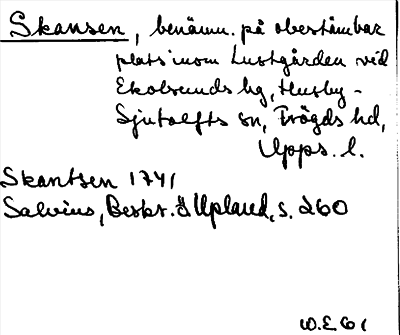 Skansen, benämn. på obestämbar
plats inom Lustgården vid
Ekolsunds hg, Husby-
Sjutolfts sn, Trögds hd,
Upps. l.
Skantsen 1741
Salvius, Beskr. ö Upland, s. 260
W.E. 61